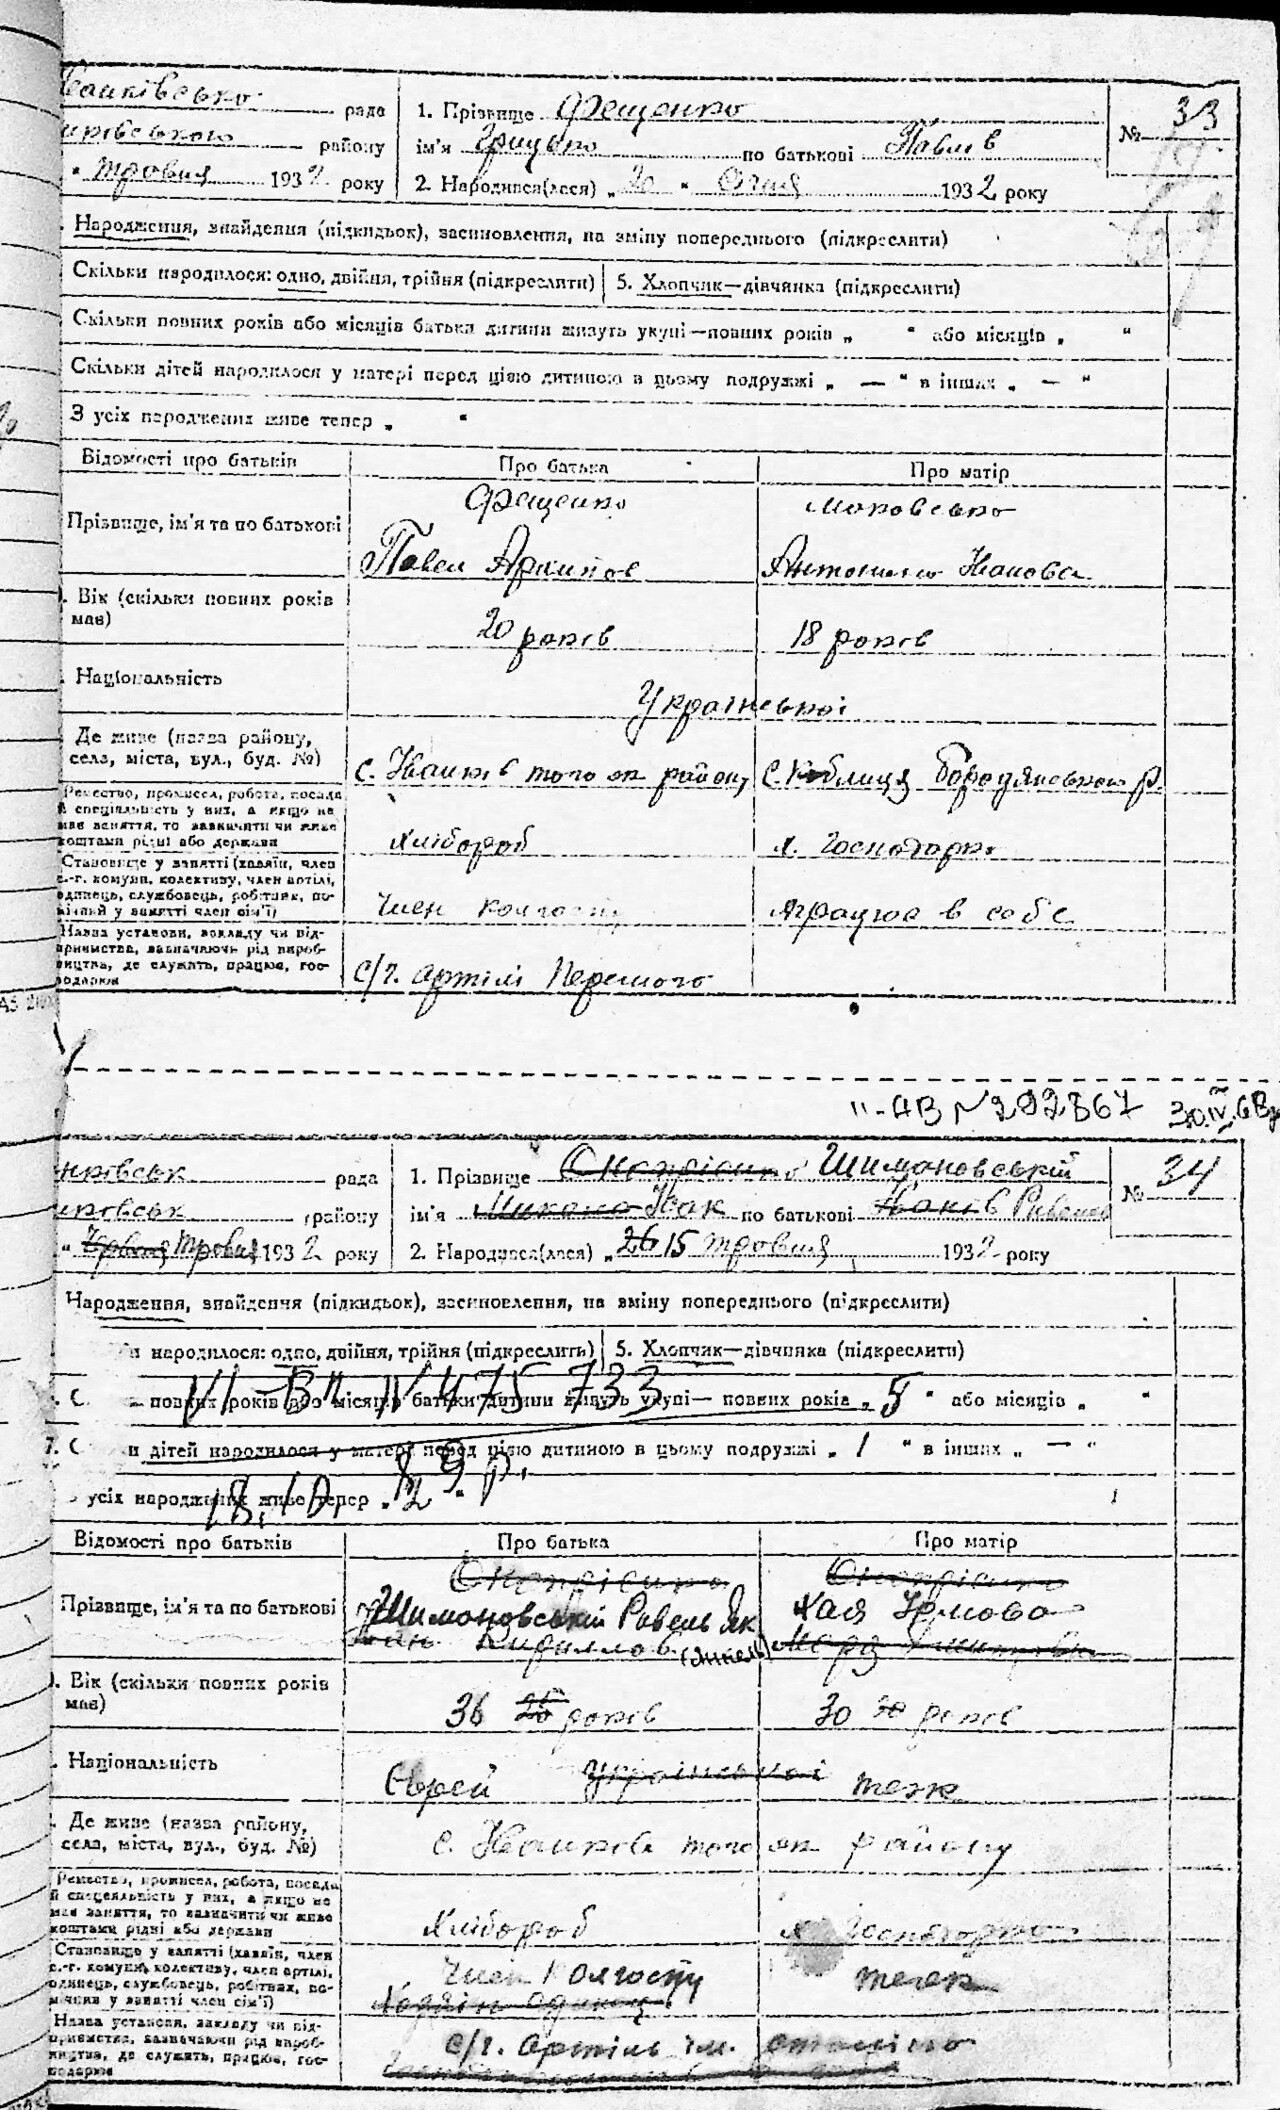 рада
району
" травня 1932 року
1. Прізвище Фещенко
ім'я Грицько по батькові Павлів
2. Народився(лася) „ 20 " Січня 1932 року
№ 33
Народження, знайдення (підкидьок), засиновлення, на зміну попереднього (підкреслити)
Скільки народилося: одно, двійня, трійня (підкреслити)
5. Хлопчик—дівчинка (підкреслити)
Скільки повних років або місяців батьки дитини живуть укупі—повних років „ " або місяців „ "
Скільки дітей народилося у матері перед цією дитиною в цьому подружжі „ — " в інших „ — "
З усіх народжених живе тепер „ "
Відомості про батьків
Про батька
Про матір
Прізвище, ім'я та по батькові
Фещенко
Павел Архипов
Маковсько
Антонина Іванова
Вік (скільки повних років
має)
20 років
18 років
Національність
Української
Де живе (назва району,
села, міста, вул., буд. №)
с. Іванків того ж району
с. Коблиця Бородянського р.
Ремество, промисел, робота, посада
й спеціальність у них, а якщо не
має заняття, то зазначити чи живе
коштами рідні або держави
Хлібороб
х. господарка
Становище у занятті (хазяїн, член
с.-г. комуни, колективу, член артілі,
одинець, службовець, робітник, по-
мічний у занятті член сім'ї)
Член колгоспу
працює в себе
Назва установи, закладу чи від-
приємства, зазначаючи рід вироб-
ництва, де служить, працює, гос-
подарює
с/г. артілі
"-АВ № 292867 30.IV.
рада
району
Червня Травня 1932 року
1. Прізвище Шимановський
ім'я Микола Ісак по батькові Іванів
2. Народився(лася) „ 26 15 травня 1932 року
№ 34
Народження, знайдення (підкидьок), засиновлення, на зміну попереднього (підкреслити)
народилося: одно, двійня, трійня (підкреслить)
5. Хлопчик—дівчинка (підкреслити)
повних років або місяців батьки дитини живуть укупі— повних років „ 5 " або місяців „ "
7. дітей народилося у матері перед цією дитиною в цьому подружжі „ 1 " в інших „ — "
усіх народжених живе тепер „ 2 "
Відомості про батьків
Про батька
Про матір
Прізвище, ім'я та по батькові
Шимановський
Іван Кирилов
Хая
Вік (скільки повних років
має)
36 26 років
30 20 років
Національність
Єврей
Української
теж
Де живе (назва району,
села, міста, вул., буд. №)
с. Іванків того ж району
Ремество, промисел, робота, посада
й спеціяльність у них, а якщо не
має заняття, то зазначити чи живе
коштами рідні або держави
Хлібороб
х. господарка
Становище у занятті (хазяїн, член
с.-г. комуни, колективу, член артілі,
одинець, службовець, робітник, по-
мічний у занятті член сім'ї)
Член колгоспу
Хазяїн одинец
теж
Назва установи, закладу чи від-
приємства, зазначаючи рід вироб-
ництва, де служить, працює, гос-
подарює
с/г. артіль ім. Сталіна